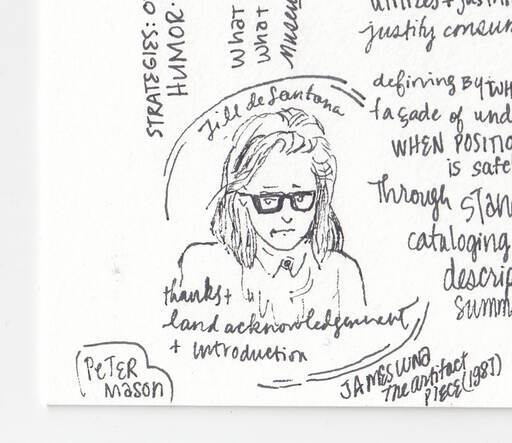 STRATEGIES: O
HUMOR.
What
What
Museu
justify consum
defining BY WH
façade of und
WHEN POSITIO
is safe
Through STAN
cataloging
descrip
summ
Jill deSantana
thanks +
land acknowledgement
+ introduction
PETER
Mason
JAMES LUNA
The artifact
PIECE (1987)